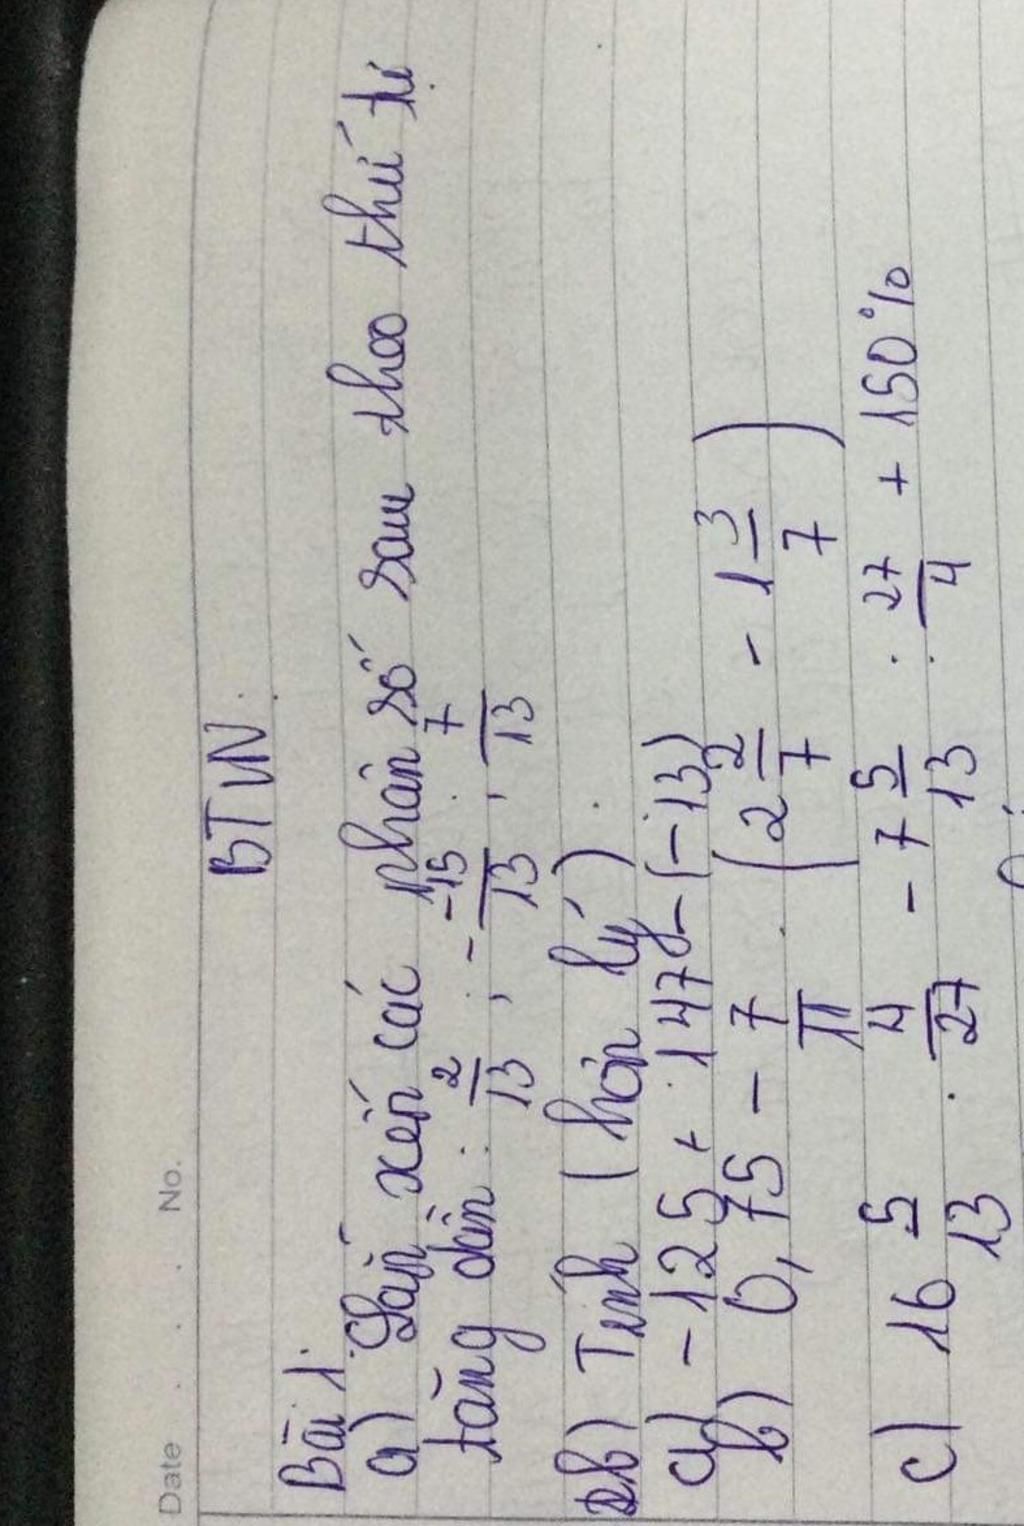 Date No.
BTVN.
Bài 1:
a) Sắp xếp các phân số sau theo thứ tự
tăng dần: 2/13 ; - -15/13 ; 7/13
b) Tính (hợp lý)
a) -125 + 147 - (-13)
b) 0,75 - 7/11 . (2 2/7 - 1 3/7)
c) 16 5/13 . 4/27 - 7 5/13 : 27/4 + 150%